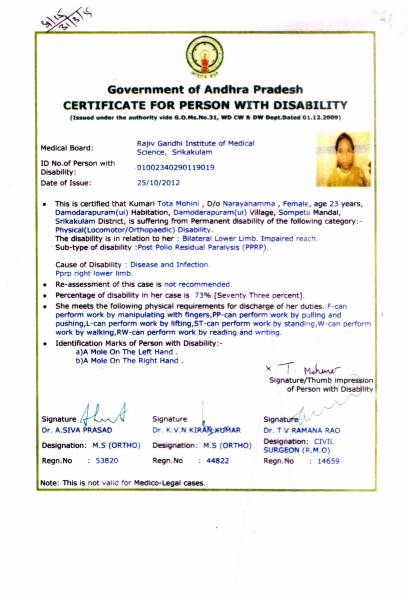 31/3/15
Government of Andhra Pradesh
CERTIFICATE FOR PERSON WITH DISABILITY
(Issued under the authority vide G.O.Ms.No.31, WD CW & DW Dept.Dated 01.12.2009)
Medical Board: Rajiv Gandhi Institute of Medical
Science, Srikakulam
ID No.of Person with
Disability: 01002340290119019
Date of Issue: 25/10/2012
• This is certified that Kumari Tota Mohini , D/o Narayanamma , Female, age 23 years,
Damodarapuram(ui) Habitation, Damodarapuram(ui) Village, Sompeta Mandal,
Srikakulam District, is suffering from Permanent disability of the following category:-
Physical(Locomotor/Orthopaedic) Disability.
The disability is in relation to her : Bilateral Lower Limb. Impaired reach.
Sub-type of disability :Post Polio Residual Paralysis (PPRP).
Cause of Disability : Disease and Infection.
Pprp right lower limb.
• Re-assessment of this case is not recommended.
• Percentage of disability in her case is 73% [Seventy Three percent].
• She meets the following physical requirements for discharge of her duties. F-can
perform work by manipulating with fingers,PP-can perform work by pulling and
pushing,L-can perform work by lifting,ST-can perform work by standing,W-can perform
work by walking,RW-can perform work by reading and writing.
• Identification Marks of Person with Disability:-
a)A Mole On The Left Hand .
b)A Mole On The Right Hand .
x T.
Signature/Thumb impression
of Person with Disability
Signature Signature Signature
Dr. A.SIVA PRASAD Dr. K.V.N KIRAN KUMAR Dr. T V RAMANA RAO
Designation: M.S (ORTHO) Designation: M.S (ORTHO) Designation: CIVIL
SURGEON (R.M.O)
Regn.No : 53820 Regn.No : 44822 Regn.No : 14659
Note: This is not valid for Medico-Legal cases.